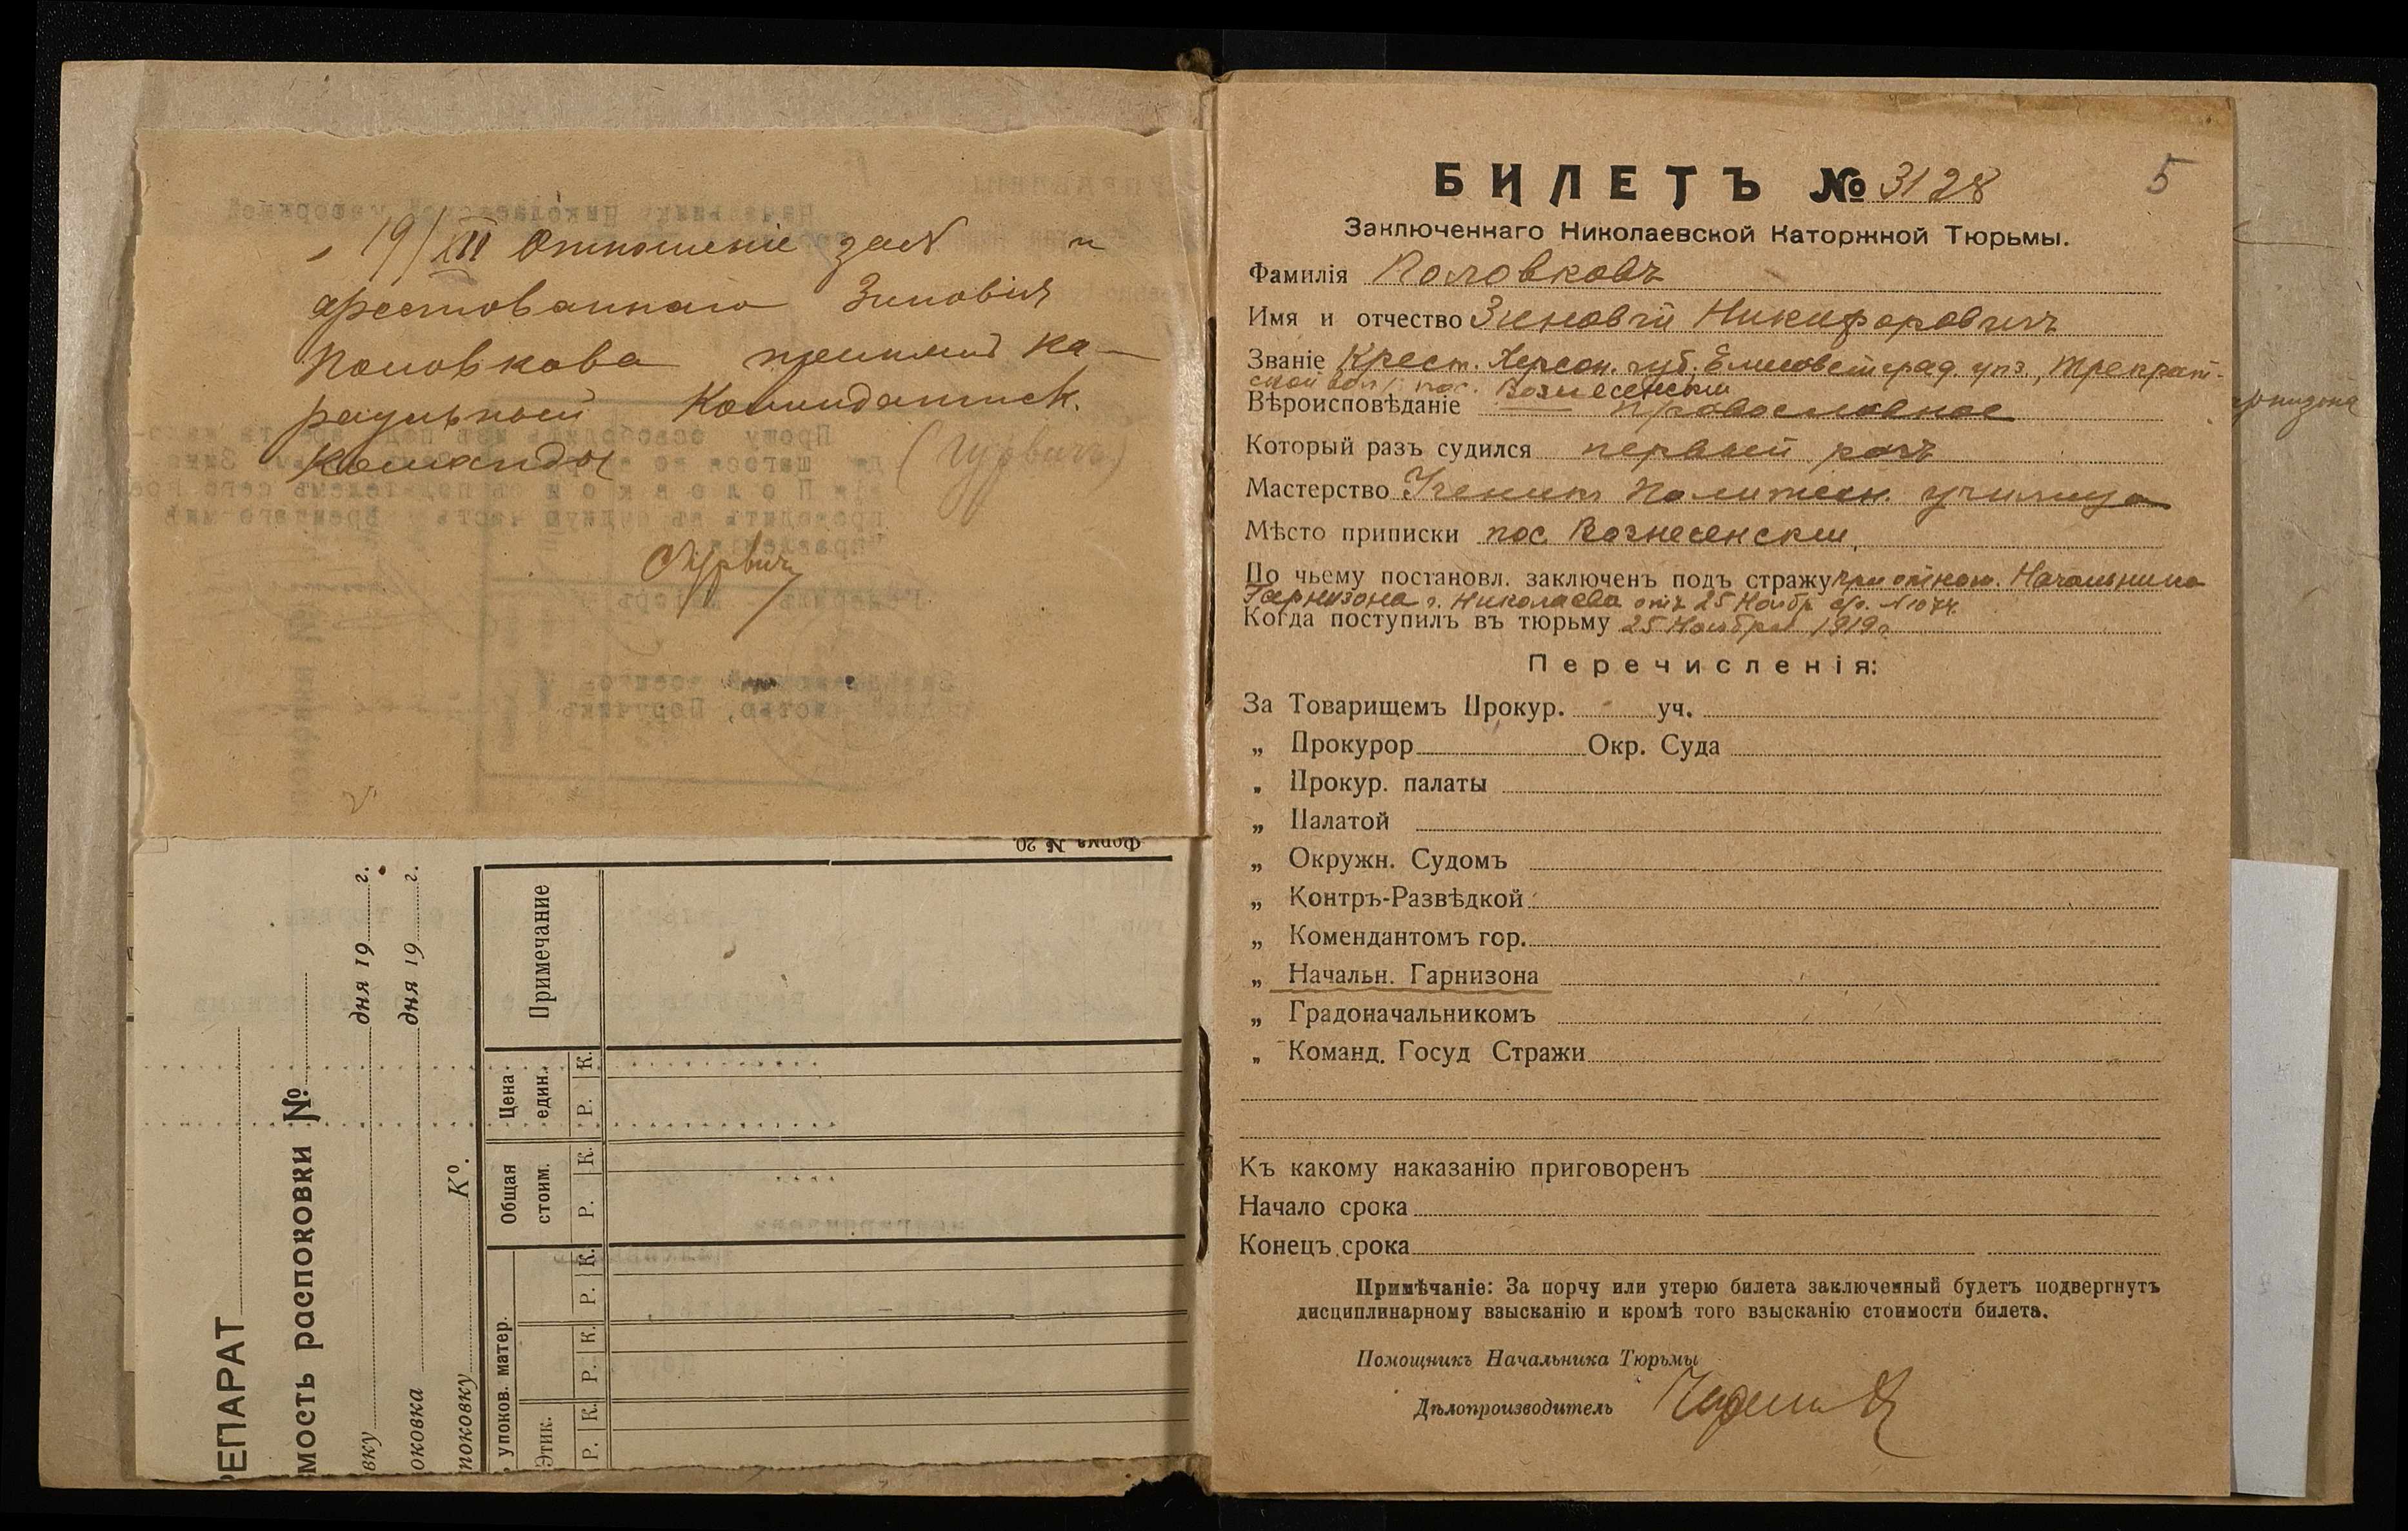 19/XII Отношеніе за № и
арестованнаго Зиновія
Половкова принялъ ка-
раульный Комендантск.
команды
(Гурвичъ)
Гурвичъ
Форма № 20
РЕПАРАТ
мость распоковки №
вку дня 19 г.
оковка дня 19 г.
поковку К°.
Примечание
Цена един.
Р. К.
Общая стоим.
Р. К.
упоков. матер.
Р. К.
Р. К.
Этик.
Р. К.
5
БИЛЕТЪ № 3128
Заключеннаго Николаевской Каторжной Тюрьмы.
Фамилія Половковъ
Имя и отчество Зиновій Никифоровичъ
Званіе Крест. Херсон. губ. Елисоветград. уѣз., Трекрат-
ской вол. пос. Вознесенскъ
Вѣроисповѣданіе православное
Который разъ судился первый разъ
Мастерство Ученикъ Политехн. училища
Мѣсто приписки пос. Вознесенскъ
По чьему постановл. заключенъ подъ стражу при отнош. Начальника
Гарнизона г. Николаева отъ 25 Ноябр с/г. № 1074.
Когда поступилъ въ тюрьму 25 Ноября 1919 г.
Перечисленія:
За Товарищемъ Прокур. уч.
„ Прокурор Окр. Суда
„ Прокур. палаты
„ Палатой
„ Окружн. Судомъ
„ Контръ-Развѣдкой
„ Комендантомъ гор.
„ Начальн. Гарнизона
„ Градоначальникомъ
„ Команд. Госуд Стражи
Къ какому наказанію приговоренъ
Начало срока
Конецъ срока
Примѣчаніе: За порчу или утерю билета заключенный будетъ подвергнутъ
дисциплинарному взысканію и кромѣ того взысканію стоимости билета.
Помощникъ Начальника Тюрьмы
Дѣлопроизводитель